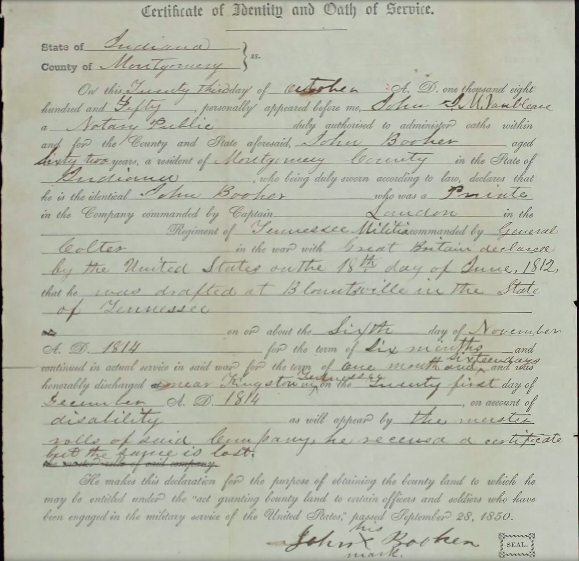 Certificate of Identity and Oath of Service.
State of Indiana
County of Montgomery } ss.
On this Twenty third day of October A. D. one thousand eight
hundred and Fifty, personally appeared before me, John
a Notary Public duly authorised to administer oaths within
and for the County and State aforesaid, John Booher aged
Sixty two years, a resident of Montgomery County in the State of
Indiana, who being duly sworn according to law, declares that
he is the identical John Booher who was a Private
in the Company commanded by Captain Landon in the
Regiment of Tennessee Militia commanded by General
Colter in the war with Great Britain declared
by the United States on the 18th day of June, 1812,
that he was drafted at Blountsville in the State
of Tennessee
on or about the Sixth day of November
A. D. 1814 for the term of Six months and
continued in actual service in said war for the term of one month and sixteen days and was
honorably discharged near Kingston Tennessee on the Twenty first day of
December A. D. 1814, on account of
disability as will appear by the muster
rolls of said Company, he received a certificate
but the same is lost.
He makes this declaration for the purpose of obtaining the bounty land to which he
may be entitled under the "act granting bounty land to certain officers and soldiers who have
been engaged in the military service of the United States," passed September 28, 1850.
his
John X Booher
mark.
SEAL.